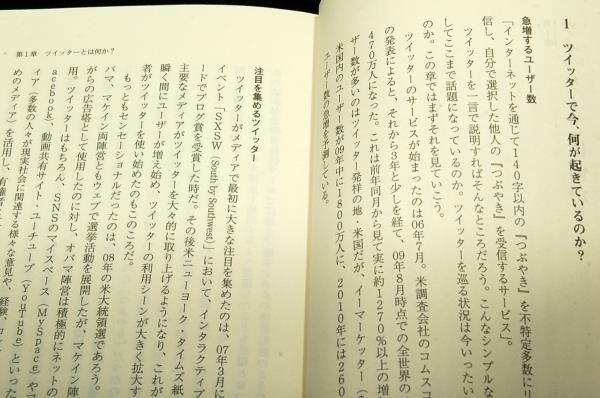 1 ツイッターで今、何が起きているのか?
急増するユーザー数
「インターネットを通じて140字以内の『つぶやき』を不特定多数にリ
信し、自分で選択した他人の『つぶやき』を受信するサービス」。
ツイッターを一言で説明すればそんなところだろう。こんなシンプルな
してここまで話題になっているのか。ツイッターを巡る状況は今いったい
のか。この章ではまずそれを見ていこう。
ツイッターのサービスが始まったのは06年7月。米調査会社のコムスコ
の発表によると、それから3年と少しを経て、09年8月時点での全世界の
470万人になった。これは前年同月から見て実に約1270%以上の増
ザー数が多いのはツイッター発祥の地・米国だが、イーマーケッター(
米国内のユーザー数が09年中に1800万人に、2010年には260
ユーザー数の急増を予測している。
第1章 ツイッターとは何か?
注目を集めるツイッター
ツイッターがメディアで最初に大きな注目を集めたのは、07年3月に
イベント「SXSW(South by Southwest)」において、インタラクティブ
ードでブログ賞を受賞した時だ。その後米ニューヨーク・タイムズ紙
主要なメディアがツイッターを大々的に取り上げるようになり、これが
瞬く間にユーザーが増え始め、ツイッターの利用シーンが大きく拡大す
者がツイッターを使い始めたのもこのころだ。
もっともセンセーショナルだったのは、08年の米大統領選であろう。
バマ、マケイン両陣営ともウェブで選挙活動を展開したが、マケイン陣
がらの広告塔として使用したのに対し、オバマ陣営は積極的にネットの
用。ツイッターはもちろん、SNSのマイスペース(MySpace)やフ
acebook、動画共有サイト・ユーチューブ(YouTube)といった
ィア(多数の人々が現実社会に関連する様々な意見や、経験、
めのメディア)を活用し、有権者